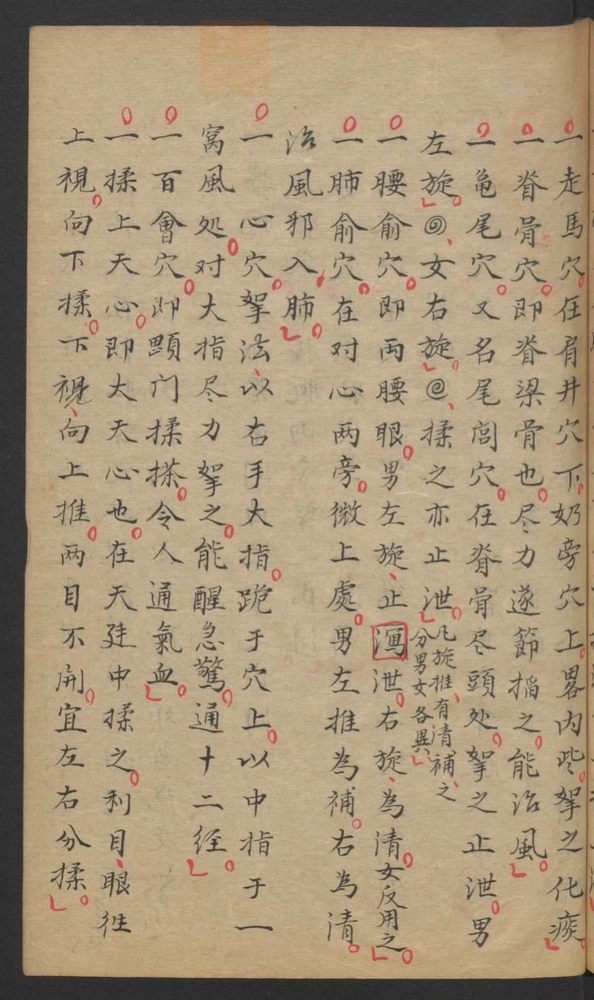 一走馬穴。在肩井穴下。奶旁穴上。畧内些。拏之化痰
一脊骨穴。即脊梁骨也。尽力遂節掐之。能治風。
一龟尾穴。又名尾闾穴。在脊骨尽頭处。拏之止泄。男
左旋。女右旋。揉之亦止泄。凡旋推、有清、補之、
分男女各異
一腰俞穴。即両腰眼。男左旋、止瀉泄。右旋、為清。女反用之。
一肺俞穴。在对心两旁。微上處。男左推為補。右為清。
治風邪入肺。
一心穴。拏法、以右手大指。跪于穴上。以中指于一
窩風处。对大指尽力拏之。能醒急驚。通十二経。
一百會穴。即顖门揉搽。令人通氣血。
一揉上天心。即大天心也。在天廷中揉之。利目、眼徃
上視。向下揉。下視、向上推。两目不開。宜左右分揉。